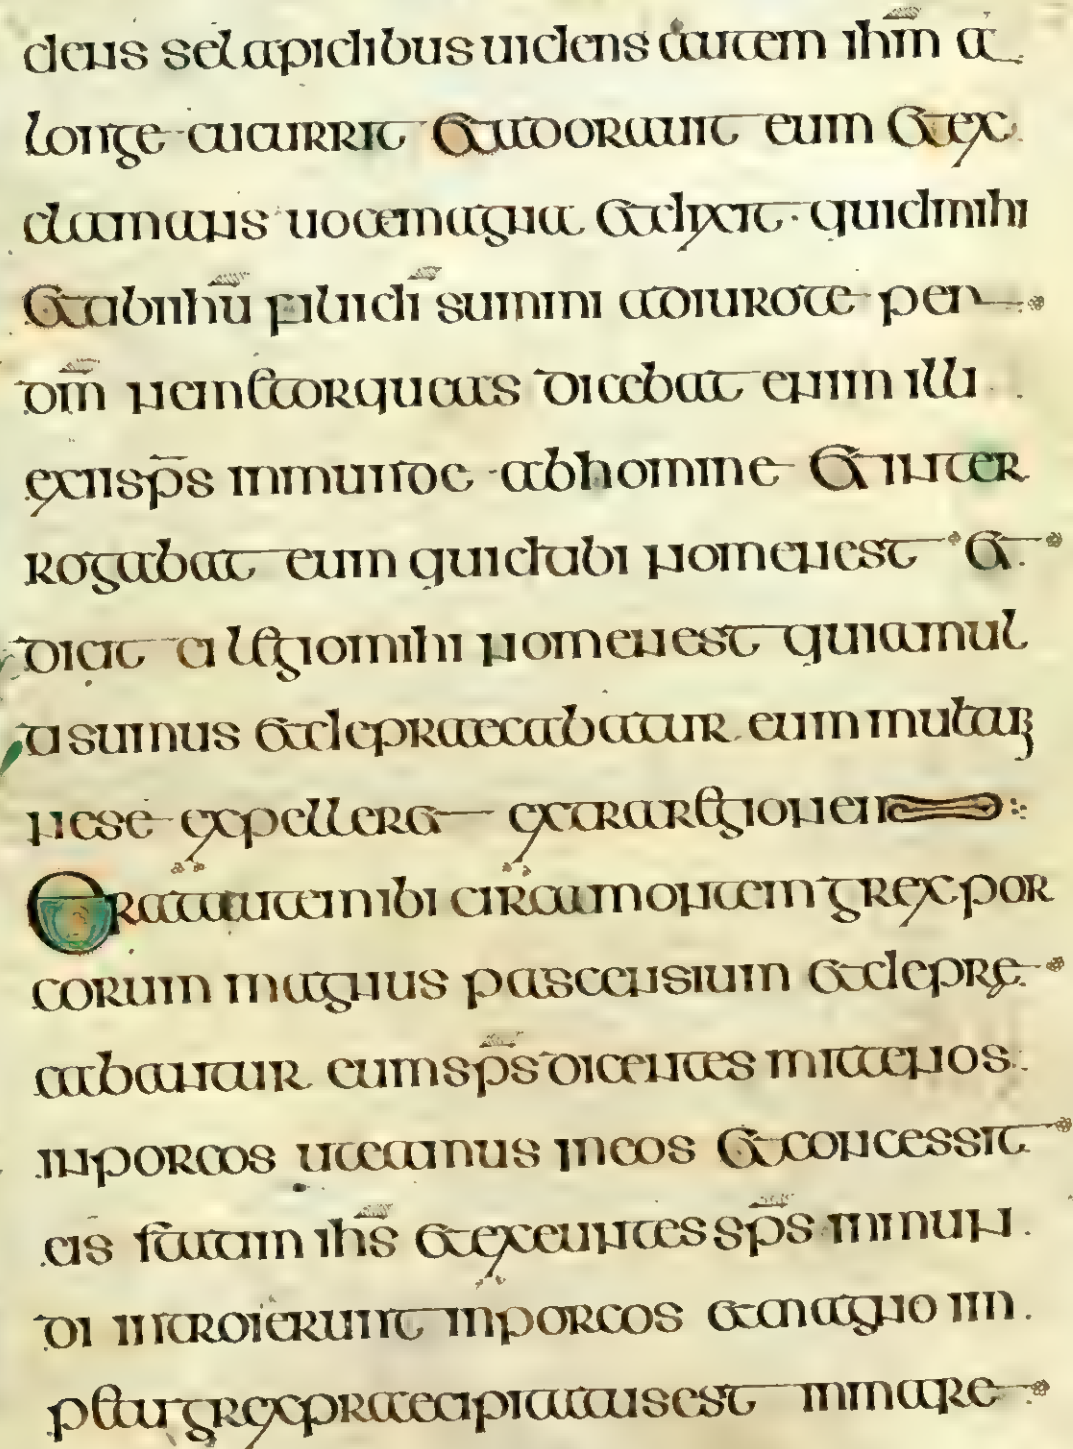 dens se lapidibus uidens autem ihm a
longe cucurrit et adorauit eum et ex
clamans uoce magna et dixit · quid mihi
et tibi ihu fili di summi adiuro te per
dm ne me torqueas dicebat enim illi
exi sps inmunde ab homine et inter
rogabat eum quid tibi nomen est et
dicit ei legio mihi nomen est quia mul
ti sumus et depraecabatur eum multum
ne se expelleret extra regionem
Erat autem ibi circa montem grex por
corum magnus pascensium et depre
cabantur eum sps dicentes mitte nos
in porcos ut eamus in eos et concessit
eis statim ihs et exeuntes sps inmun
di introierunt in porcos et magno im
petu grex praecipitatus est in mare